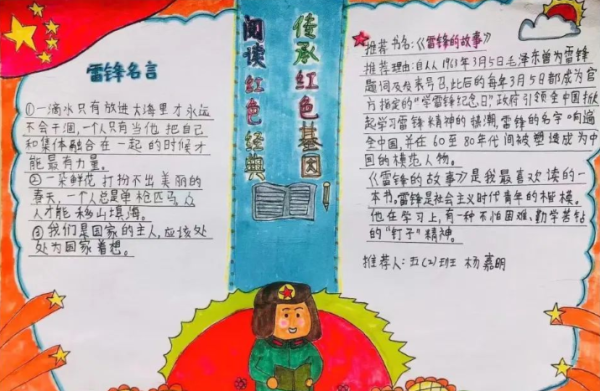 雷锋名言
①一滴水只有放进大海里才永远
不会干涸,一个人只有当他把自己
和集体融合在一起的时候才
能最有力量。
②一朵鲜花打扮不出美丽的
春天,一个人总是单枪匹马,众
人才能移山填海。
③我们是国家的主人,应该处
处为国家着想。
传承红色基因
阅读红色经典
推荐书名:《雷锋的故事》
推荐理由:自从1961年3月5日毛泽东曾为雷锋
题词及发表号召,此后的每年3月5日都成为官
方指定的“学雷锋纪念日”政府引领全中国掀
起学习雷锋精神的热潮,雷锋的名字响遍
全中国,并在60至80年代间被塑造成为中
国的模范人物。
《雷锋的故事》是我最喜欢读的一
本书。雷锋是社会主义时代青年的楷模。
他在学习上,有一种不怕困难、勤学苦钻
的“钉子”精神。
推荐人:五(2)班 杨嘉明